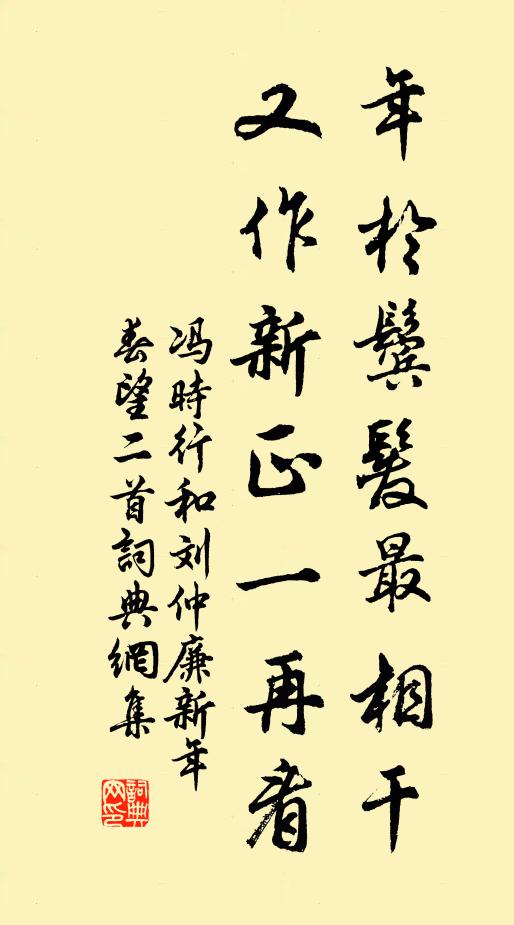 年於鬢髮最相干
又作新正一再看
冯時行和刘仲廉新年
春望二首詞典網集
詞典网印